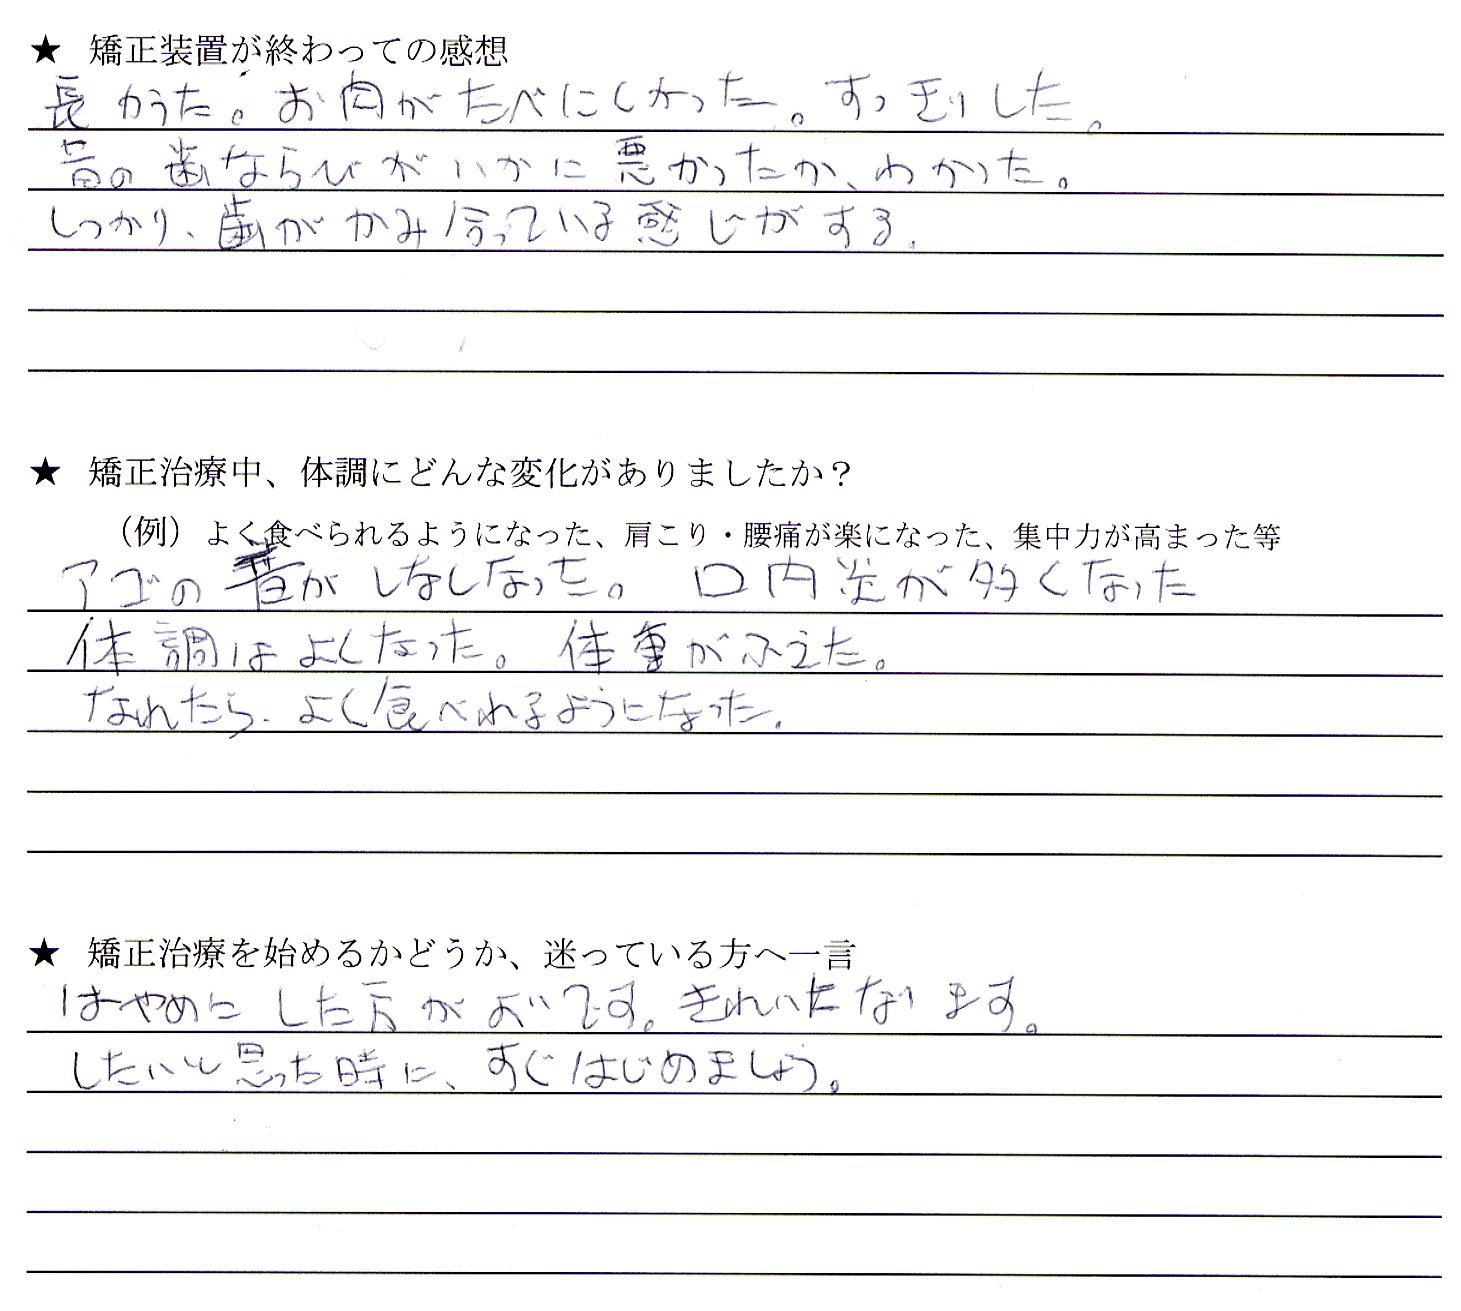 ★ 矯正装置が終わっての感想
長かった。お肉がたべにくかった。すっきりした。
昔の歯ならびがいかに悪かったか、わかった。
しっかり、歯がかみ合っている感じがする。
★ 矯正治療中、体調にどんな変化がありましたか?
(例)よく食べられるようになった、肩こり・腰痛が楽になった、集中力が高まった等
アゴの音がしなくなった。 口内炎が多くなった
体調はよくなった。体重がふえた。
なれたら、よく食べれるようになった。
★ 矯正治療を始めるかどうか、迷っている方へ一言
はやめにした方がよいです。きれいになります。
したいと思った時に、すぐはじめましょう。